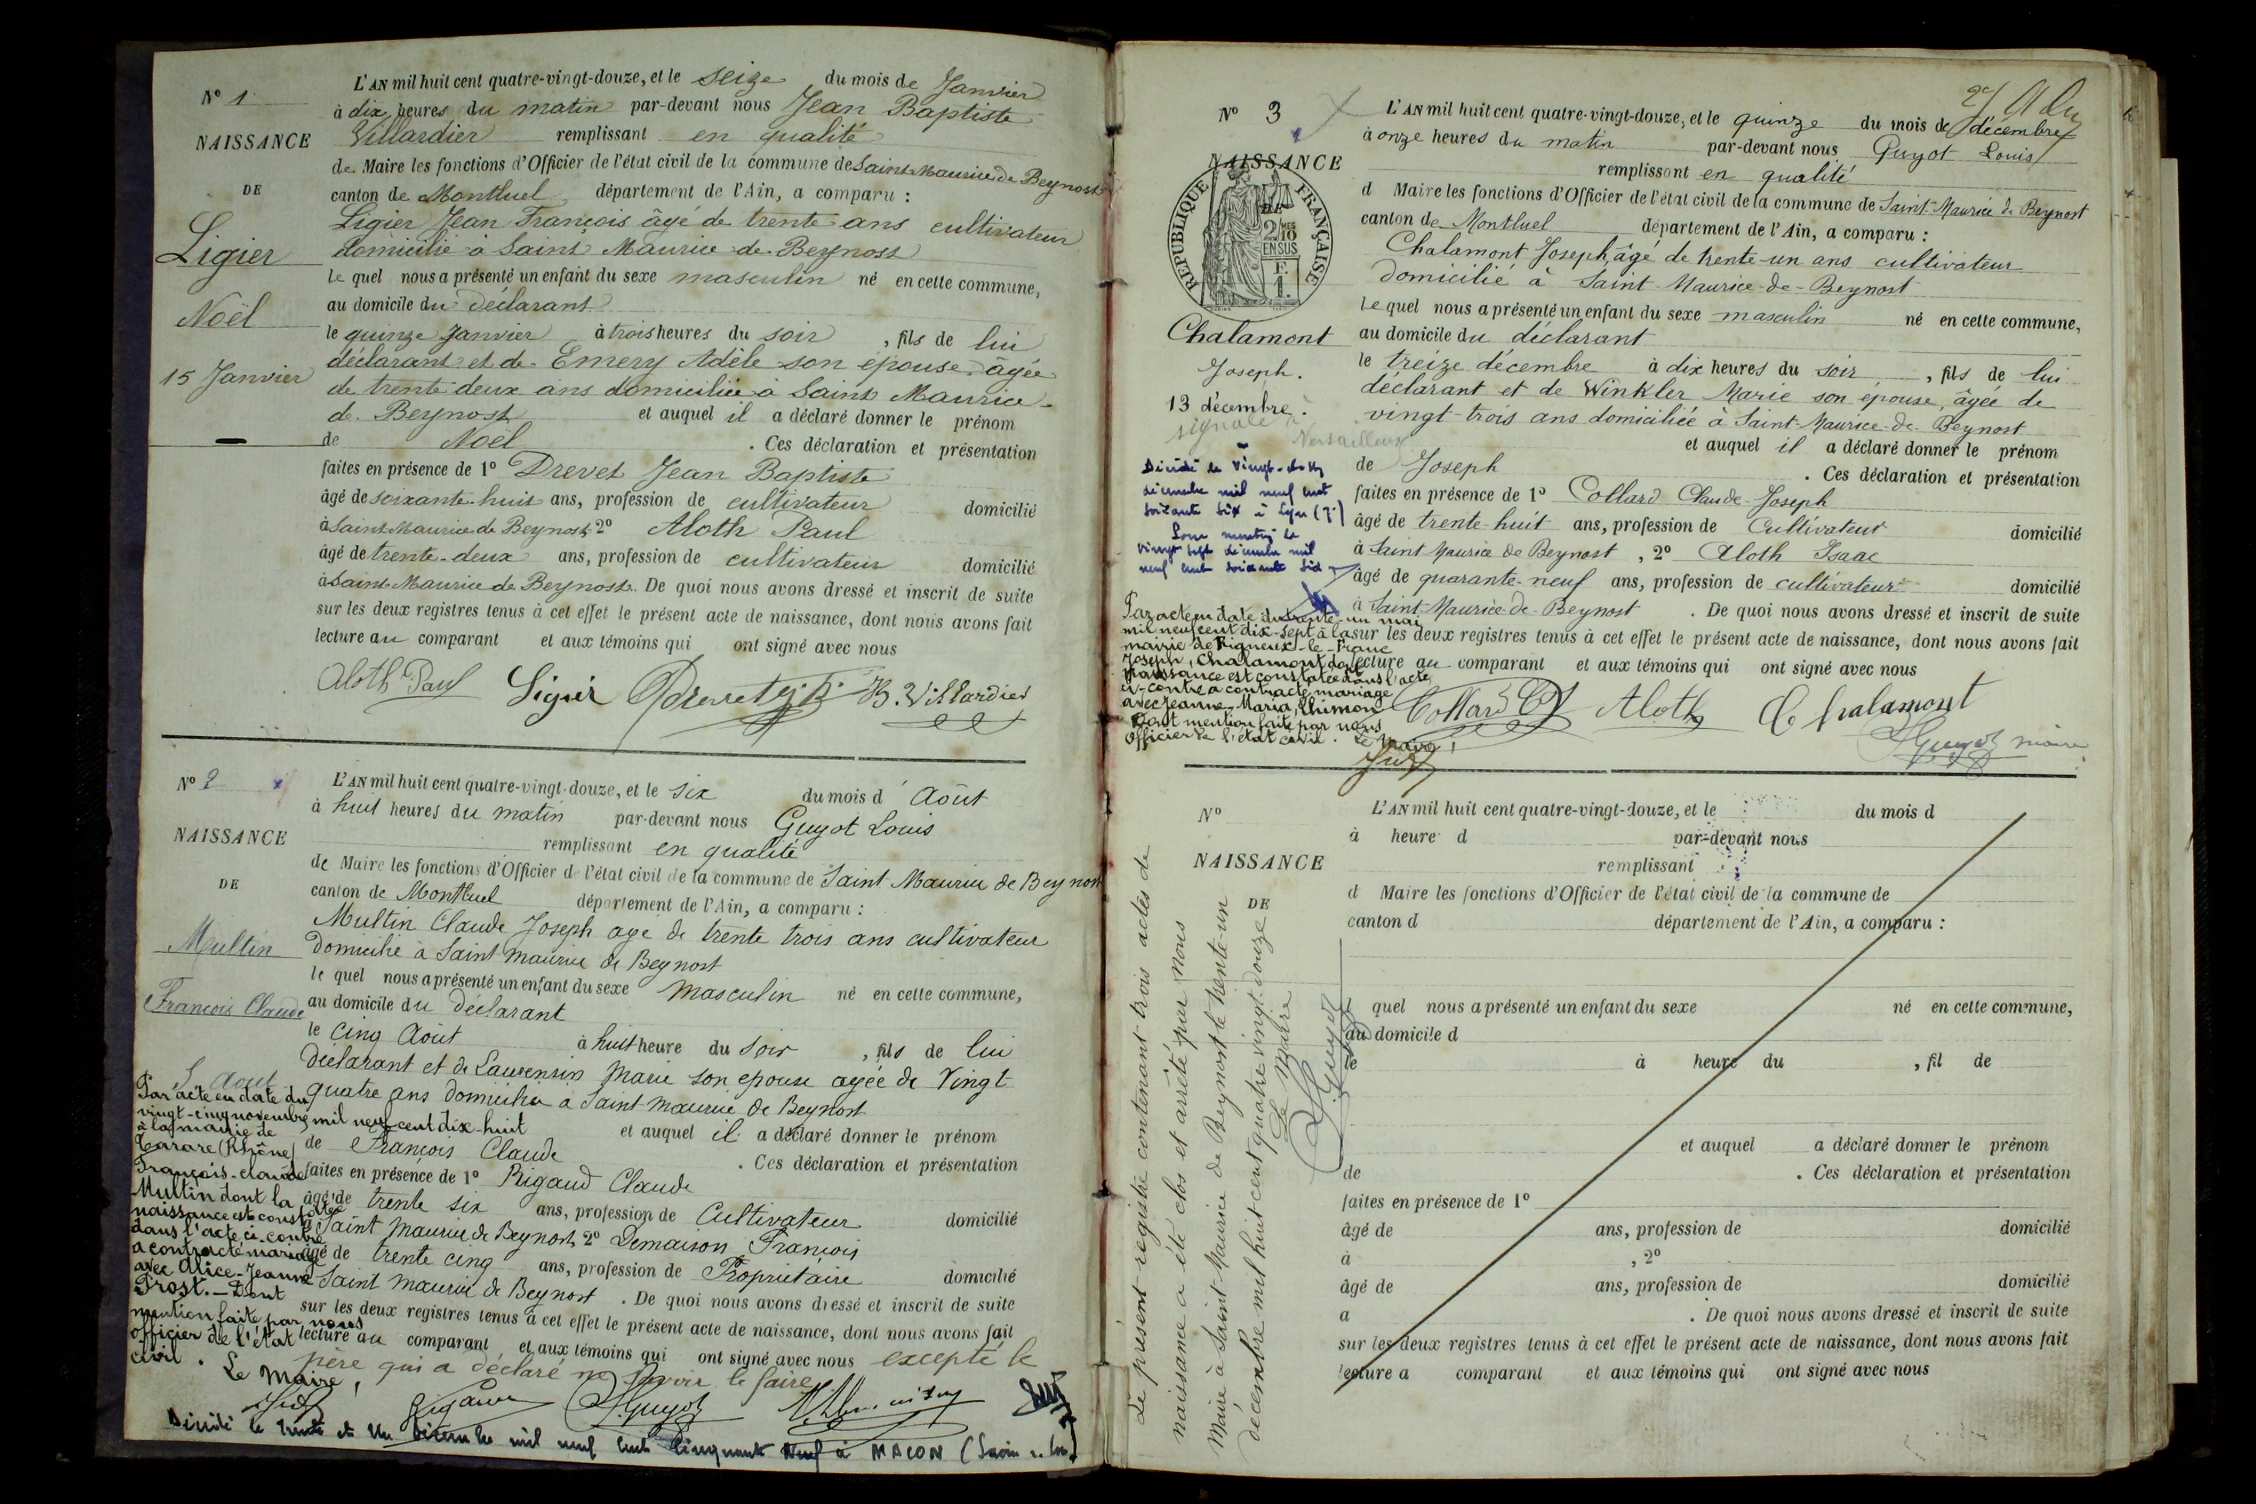 N° 1
NAISSANCE
DE
Ligier
Noël
15 Janvier
L'AN mil huit cent quatre-vingt-douze, et le seize du mois de Janvier
à dix heures du matin par-devant nous Jean Baptiste
Villardier remplissant en qualité
de Maire les fonctions d'Officier de l'état civil de la commune de Saint Maurice de Beynost
canton de Montluel département de l'Ain, a comparu :
Ligier Jean François âgé de trente ans cultivateur
domicilié à Saint Maurice de Beynost
le quel nous a présenté un enfant du sexe masculin né en cette commune,
au domicile du déclarant
le quinze Janvier à trois heures du soir , fils de lui
déclarant et de Emery Adèle son épouse âgée
de trente deux ans domiciliée à Saint Maurice
de Beynost et auquel il a déclaré donner le prénom
de Noel . Ces déclaration et présentation
faites en présence de 1° Drevet Jean Baptiste
âgé de soixante huit ans, profession de cultivateur domicilié
à Saint Maurice de Beynost, 2° Aloth Paul
âgé de trente-deux ans, profession de cultivateur domicilié
à Saint Maurice de Beynost. De quoi nous avons dressé et inscrit de suite
sur les deux registres tenus à cet effet le présent acte de naissance, dont nous avons fait
lecture au comparant et aux témoins qui ont signé avec nous
Aloth Paul Ligier Drevet JB. Villardier
N° 2
NAISSANCE
DE
Multin
François Claude
5 Aout
L'AN mil huit cent quatre-vingt-douze, et le six du mois d' Août
à huit heures du matin par-devant nous Guyot Louis
remplissant en qualité
de Maire les fonctions d'Officier de l'état civil de la commune de Saint Maurice de Beynost
canton de Montluel département de l'Ain, a comparu :
Multin Claude Joseph age de trente trois ans cultivateur
domicilié à Saint Maurice de Beynost
le quel nous a présenté un enfant du sexe masculin né en cette commune,
au domicile du déclarant
le cinq Août à huit heure du soir , fils de lui
déclarant et de Laurensin Marie son epouse agée de vingt
quatre ans domiciliée à Saint Maurice de Beynost
et auquel il a déclaré donner le prénom
de François Claude . Ces déclaration et présentation
faites en présence de 1° Rigaud Claude
âgé de trente six ans, profession de Cultivateur domicilié
à Saint Maurice de Beynost, 2° Demaison François
âgé de trente cinq ans, profession de Propriétaire domicilié
à Saint Maurice de Beynost . De quoi nous avons dressé et inscrit de suite
sur les deux registres tenus à cet effet le présent acte de naissance, dont nous avons fait
lecture au comparant et aux témoins qui ont signé avec nous excepté le
père qui a déclaré ne savoir le faire
Par acte en date du
vingt-cinq novembre mil neuf cent dix-huit
à la mairie de
Tarare (Rhône)
François-Claude
Multin dont la
naissance est constatée
dans l'acte ci-contre
a contracté mariage
avec Alice-Jeanne
Prost. — Dont
mention faite par nous
officier de l'état
civil.
Le Maire,
Rigaud LGuyot
Décédé le trente et un décembre mil neuf cent cinquante neuf à MACON
N° 3
NAISSANCE
DE
RÉPUBLIQUE FRANÇAISE
2/10 EN SUS
F. 1.
Chalamont
Joseph.
13 décembre.
signalé à
Versailleux
Décédé le vingt
décembre mil neuf cent
soixante six à Lyon
Pour mention le
vingt sept décembre mil
neuf cent soixante six
Par acte en date du trente-un mai
mil neuf cent dix-sept à la
mairie de Rigneux-le-Franc
Joseph, Chalamont dont
naissance est constatée dans l'acte
ci-contre a contracté mariage
avec Jeanne-Maria, Chimon
Dont mention faite par nous
officier de l'état civil. Le Maire,
L'AN mil huit cent quatre-vingt-douze, et le quinze du mois de décembre
à onze heures du matin par-devant nous Guyot Louis
remplissant en qualité
d Maire les fonctions d'Officier de l'état civil de la commune de Saint-Maurice de Beynost
canton de Montluel département de l'Ain, a comparu :
Chalamont Joseph, âgé de trente-un ans cultivateur
domicilié à Saint-Maurice-de-Beynost
le quel nous a présenté un enfant du sexe masculin né en cette commune,
au domicile du déclarant
le treize décembre à dix heures du soir , fils de lui
déclarant et de Winkler Marie son épouse, âgée de
vingt-trois ans domiciliée à Saint-Maurice-de-Beynost
et auquel il a déclaré donner le prénom
de Joseph . Ces déclaration et présentation
faites en présence de 1° Collard Claude-Joseph
âgé de trente-huit ans, profession de Cultivateur domicilié
à Saint Maurice de Beynost , 2° Aloth Isaac
âgé de quarante-neuf ans, profession de cultivateur domicilié
à Saint-Maurice-de-Beynost . De quoi nous avons dressé et inscrit de suite
sur les deux registres tenus à cet effet le présent acte de naissance, dont nous avons fait
lecture au comparant et aux témoins qui ont signé avec nous
Collard Aloth Chalamont
LGuyot maire
Le présent registre contenant trois actes de
naissance a été clos et arrêté par nous
Maire à Saint Maurice de Beynost le trente-un
décembre mil huit cent quatre vingt-douze
Le Maire
LGuyot
N°
NAISSANCE
DE
L'AN mil huit cent quatre-vingt-douze, et le du mois d
à heure d par-devant nous
remplissant
d Maire les fonctions d'Officier de l'état civil de la commune de
canton d département de l'Ain, a comparu :
quel nous a présenté un enfant du sexe né en cette commune,
au domicile d
le à heure du , fil de
et auquel a déclaré donner le prénom
de . Ces déclaration et présentation
faites en présence de 1°
âgé de ans, profession de domicilié
à , 2°
âgé de ans, profession de domicilié
a . De quoi nous avons dressé et inscrit de suite
sur les deux registres tenus à cet effet le présent acte de naissance, dont nous avons fait
lecture a comparant et aux témoins qui ont signé avec nous